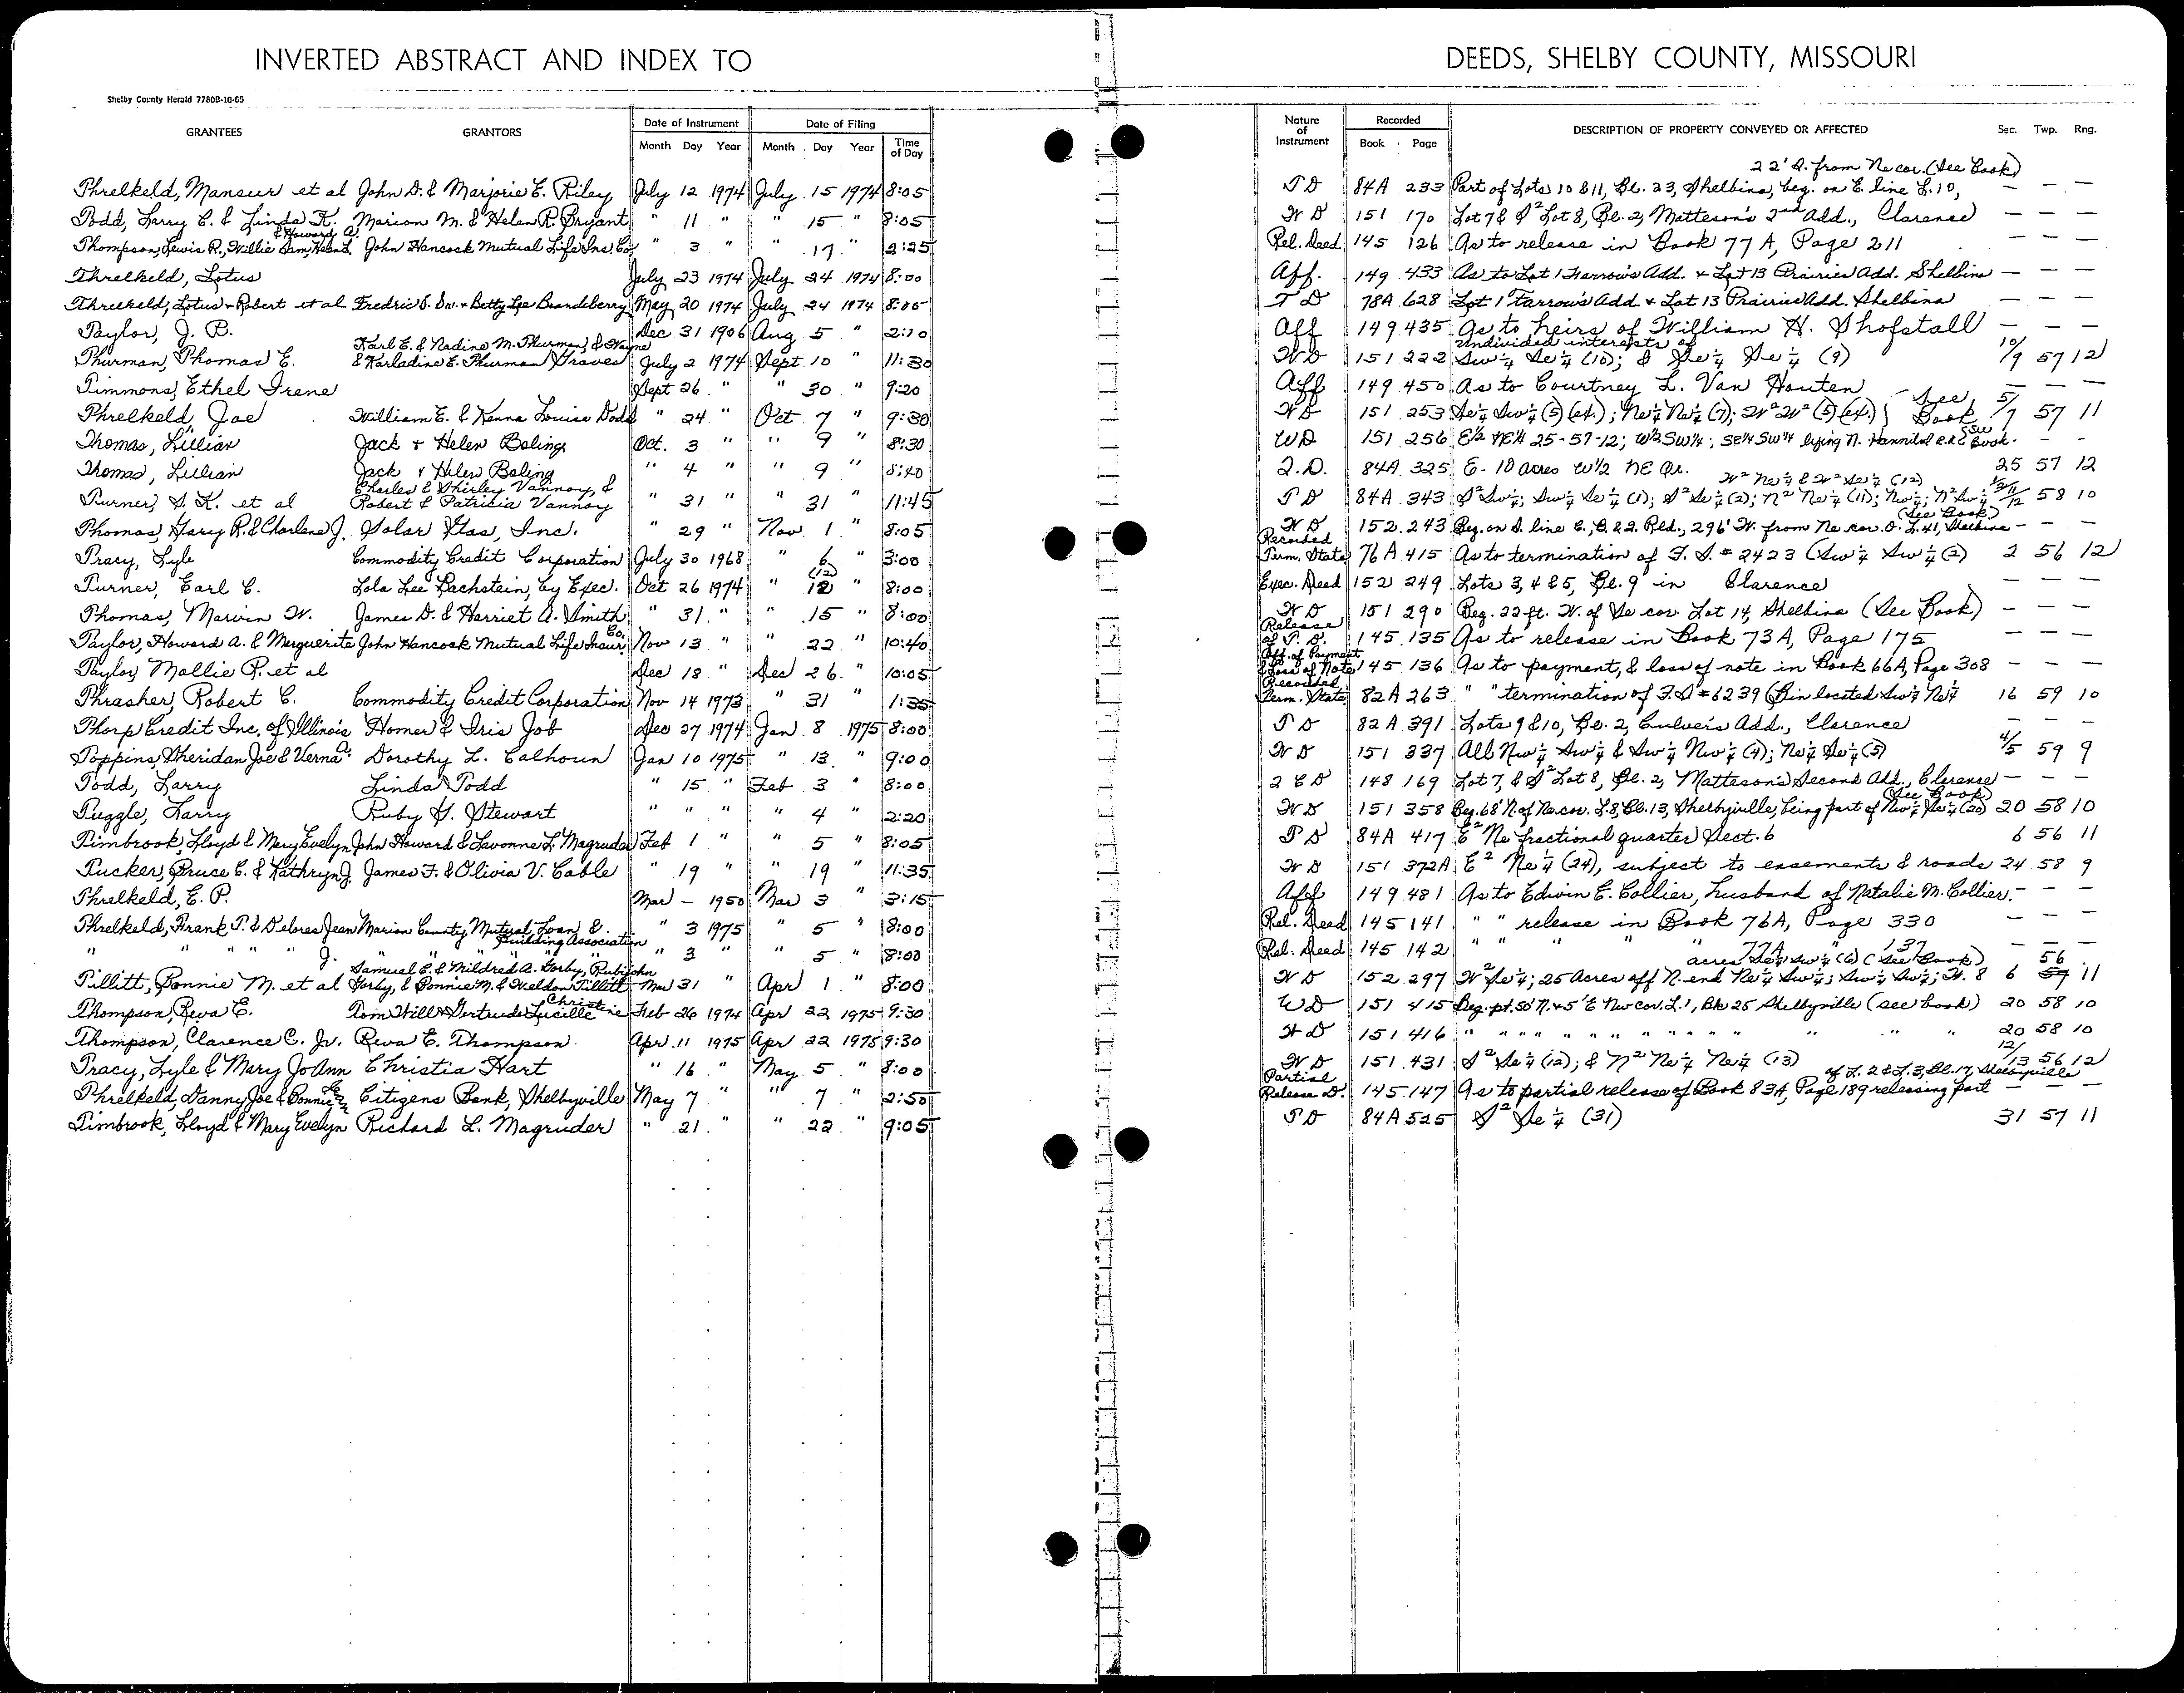 INVERTED ABSTRACT AND INDEX TO
Shelby County Herald 7780B-10-65
GRANTEES GRANTORS Date of Instrument Month Day Year Date of Filing Month Day Year Time of Day
Threlkeld, Manseur et al John D. & Marjorie E. Riley July 12 1974 July 15 1974 8:05
Todd, Larry C. & Linda K. Marion M. & Helen R. Bryant " 11 " " 15 " 8:05
& Howard A.
Thompson, Lewis R., Willie Sam, Helen L. John Hancock Mutual Life Ins. Co. " 3 " " 17 " 2:25
Threlkeld, Lotus July 23 1974 July 24 1974 8:00
Threlkeld, Lotus & Robert et al Fredric O. Sr. & Betty Lee Brandeberry May 20 1974 July 24 1974 8:05
Taylor, J. B. Dec 31 1906 Aug 5 " 2:10
Karl E. & Nadine M. Thurman, & Wayne
Thurman, Thomas E. & Karladine E. Thurman Graves July 2 1974 Sept 10 " 11:30
Timmons, Ethel Irene Sept 26 " " 30 " 9:20
Threlkeld, Joe William E. & Kenna Louise Dodd " 24 " Oct 7 " 9:30
Thomas, Lillian Jack & Helen Boling Oct. 3 " " 9 " 8:30
Thomas, Lillian Jack & Helen Boling " 4 " " 9 " 8:40
Charles & Shirley Vannoy, &
Turner, S. K. et al Robert & Patricia Vannoy " 31 " " 31 " 11:45
Thomas, Gary R. & Charlene J. Solar Gas, Inc. " 29 " Nov. 1 " 8:05
Tracy, Lyle Commodity Credit Corporation July 30 1968 " 6 " 3:00
(12)
Turner, Earl C. Lola Lee Bachstein, by Exec. Oct 26 1974 " 12 " 8:00
Thomas, Marvin W. James D. & Harriet A. Smith " 31 " " 15 " 8:00
Taylor, Howard A. & Marguerite John Hancock Mutual Life Insur. Co. Nov 13 " " 22 " 10:40
Taylor, Mollie R. et al Dec 18 " Dec 26 " 10:05
Thrasher, Robert C. Commodity Credit Corporation Nov 14 1973 " 31 " 1:35
Thorp Credit Inc. of Illinois Homer & Iris Job Dec 27 1974 Jan. 8 1975 8:00
Toppins, Sheridan Joe & Verna A. Dorothy L. Calhoun Jan 10 1975 " 13 " 9:00
Todd, Larry Linda Todd " 15 " Feb 3 " 8:00
Tuggle, Larry Ruby G. Stewart " " " " 4 " 2:20
Timbrook, Lloyd & Mary Evelyn John Howard & Lavonne L. Magruder Feb 1 " " 5 " 8:05
Tucker, Bruce C. & Kathryn J. James F. & Olivia V. Cable " 19 " " 19 " 11:35
Threlkeld, E. P. Mar - 1950 Mar 3 " 3:15
Threlkeld, Frank T. & Delores Jean Marion County Mutual Loan & Building Association " 3 1975 " 5 " 8:00
" " " " J. " " " " " 3 " " 5 " 8:00
Samuel E. & Mildred A. Gorby, Rubyjohn
Tillitt, Bonnie M. et al Gorby, & Bonnie M. & Weldon Tillitt Mar 31 " Apr 1 " 8:00
Thompson, Reva E. Tom Will & Gertrude Lucille Christine Feb 26 1974 Apr 22 1975 9:30
Thompson, Clarence C. Jr. Reva E. Thompson Apr. 11 1975 Apr 22 1975 9:30
Tracy, Lyle & Mary JoAnn Christia Hart " 16 " May 5 " 8:00
Threlkeld, Danny Joe & Bonnie Citizens Bank, Shelbyville May 7 " " 7 " 2:50
Timbrook, Lloyd & Mary Evelyn Richard L. Magruder " 21 " " 22 " 9:05
DEEDS, SHELBY COUNTY, MISSOURI
Nature of Instrument Recorded Book Page DESCRIPTION OF PROPERTY CONVEYED OR AFFECTED Sec. Twp. Rng.
22' S. from Ne cor. (See Book)
T D 84A 233 Part of Lots 10 & 11, Bl. 23, Shelbina, beg. on E. line L. 10, — — —
W D 151 170 Lot 7 & S² Lot 8, Bl. 2, Matteson's 2nd Add., Clarence — — —
Rel. Deed 145 126 As to release in Book 77A, Page 211 — — —
Aff. 149 433 As to Lot 1 Farrow's Add. & Lot 13 Prairies Add. Shelbina — — —
T D 78A 628 Lot 1 Farrow's Add. & Lot 13 Prairies Add. Shelbina — — —
Aff 149 435 As to heirs of William H. Shofstall — — —
Undivided interests of
W D 151 222 Sw¼ Se¼ (10); & Se¼ Se¼ (9) 10/9 57 12
Aff 149 450 As to Courtney L. Van Houten — — —
W D 151 253 Se¼ Sw¼ (5) (ex.); Ne¼ Ne¼ (7); W² W² (5) (ex.) } See Book 5/7 57 11
WD 151 256 E½ NE¼ 25-57-12; W½ SW¼, SE¼ SW¼ lying N. Hannibal R.R. (See Book. - -
Q.D. 84A 325 E. 10 acres W½ NE Qr. 25 57 12
W² Ne¼ & W² Se¼ (12)
T D 84A 343 S² Sw¼; Sw¼ Se¼ (1); S² Se¼ (2); N² Ne¼ (11); Nw¼; N² Sw¼ 1/2/11/12 58 10
(See Book)
W D 152 243 Beg. on S. line C., B. & Q. Rld., 296' W. from Ne cor. O. L. 41, Shelbina — — —
Recorded
Term. State 76A 415 As to termination of F. S. # 2423 (Sw¼ Sw¼ (2) 2 56 12
Exec. Deed 152 249 Lots 3, 4 & 5, Bl. 9 in Clarence — — —
W D 151 290 Beg. 22 ft. W. of Se cor. Lot 14, Shelbina (See Book) — — —
Release
of T. D. 145 135 As to release in Book 73A, Page 175 — — —
Aff. of Payment
& Loss of Note 145 136 As to payment, & loss of note in Book 66A, Page 308 — — —
Recorded
Term. State 82A 263 " " termination of F. S # 6239 (Bin located Sw¼ Ne¼ 16 59 10
T D 82A 391 Lots 9 & 10, Bl. 2, Culver's Add., Clarence — — —
W D 151 337 All Nw¼ Sw¼ & Sw¼ Nw¼ (4); Ne¼ Se¼ (5) 4/5 59 9
Q C D 148 169 Lot 7, & S² Lot 8, Bl. 2, Matteson's Second Add., Clarence — — —
(See Book)
W D 151 358 Beg. 68' N. of Ne cor. L. 8, Bl. 13, Shelbyville, being part of Nw¼ Se¼ (20) 20 58 10
T D 84A 417 E² Ne fractional quarter Sect. 6 6 56 11
W D 151 372A E² Ne¼ (24), subject to easements & roads 24 58 9
Aff 149 481 As to Edwin E. Collier, husband of Natalie M. Collier. — — —
Rel. Deed 145 141 " " release in Book 76A, Page 330 — — —
Rel. Deed 145 142 " " " " " 77A " 137 — — —
acres Se¼ Sw¼ (6) (See Book) 56
W D 152 297 W² Se¼; 25 Acres off N. end Ne¼ Sw¼; Sw¼ Sw¼; W. 8 6 57 11
WD 151 415 Beg. pt. 50' N. & 5' E Nw Cor. L. 1, Blk 25 Shelbyville (see book) 20 58 10
W D 151 416 " " " " " " " " " " " " " 20 58 10
W D 151 431 S² Se¼ (12); & N² Ne¼ Ne¼ (13) 12/13 56 12
Partial of L. 2 & L. 3, Bl. 17, Shelbyville
Release D. 145 147 As to partial release of Book 83A, Page 189 releasing part — — —
T D 84A 525 S² Se¼ (31) 31 57 11